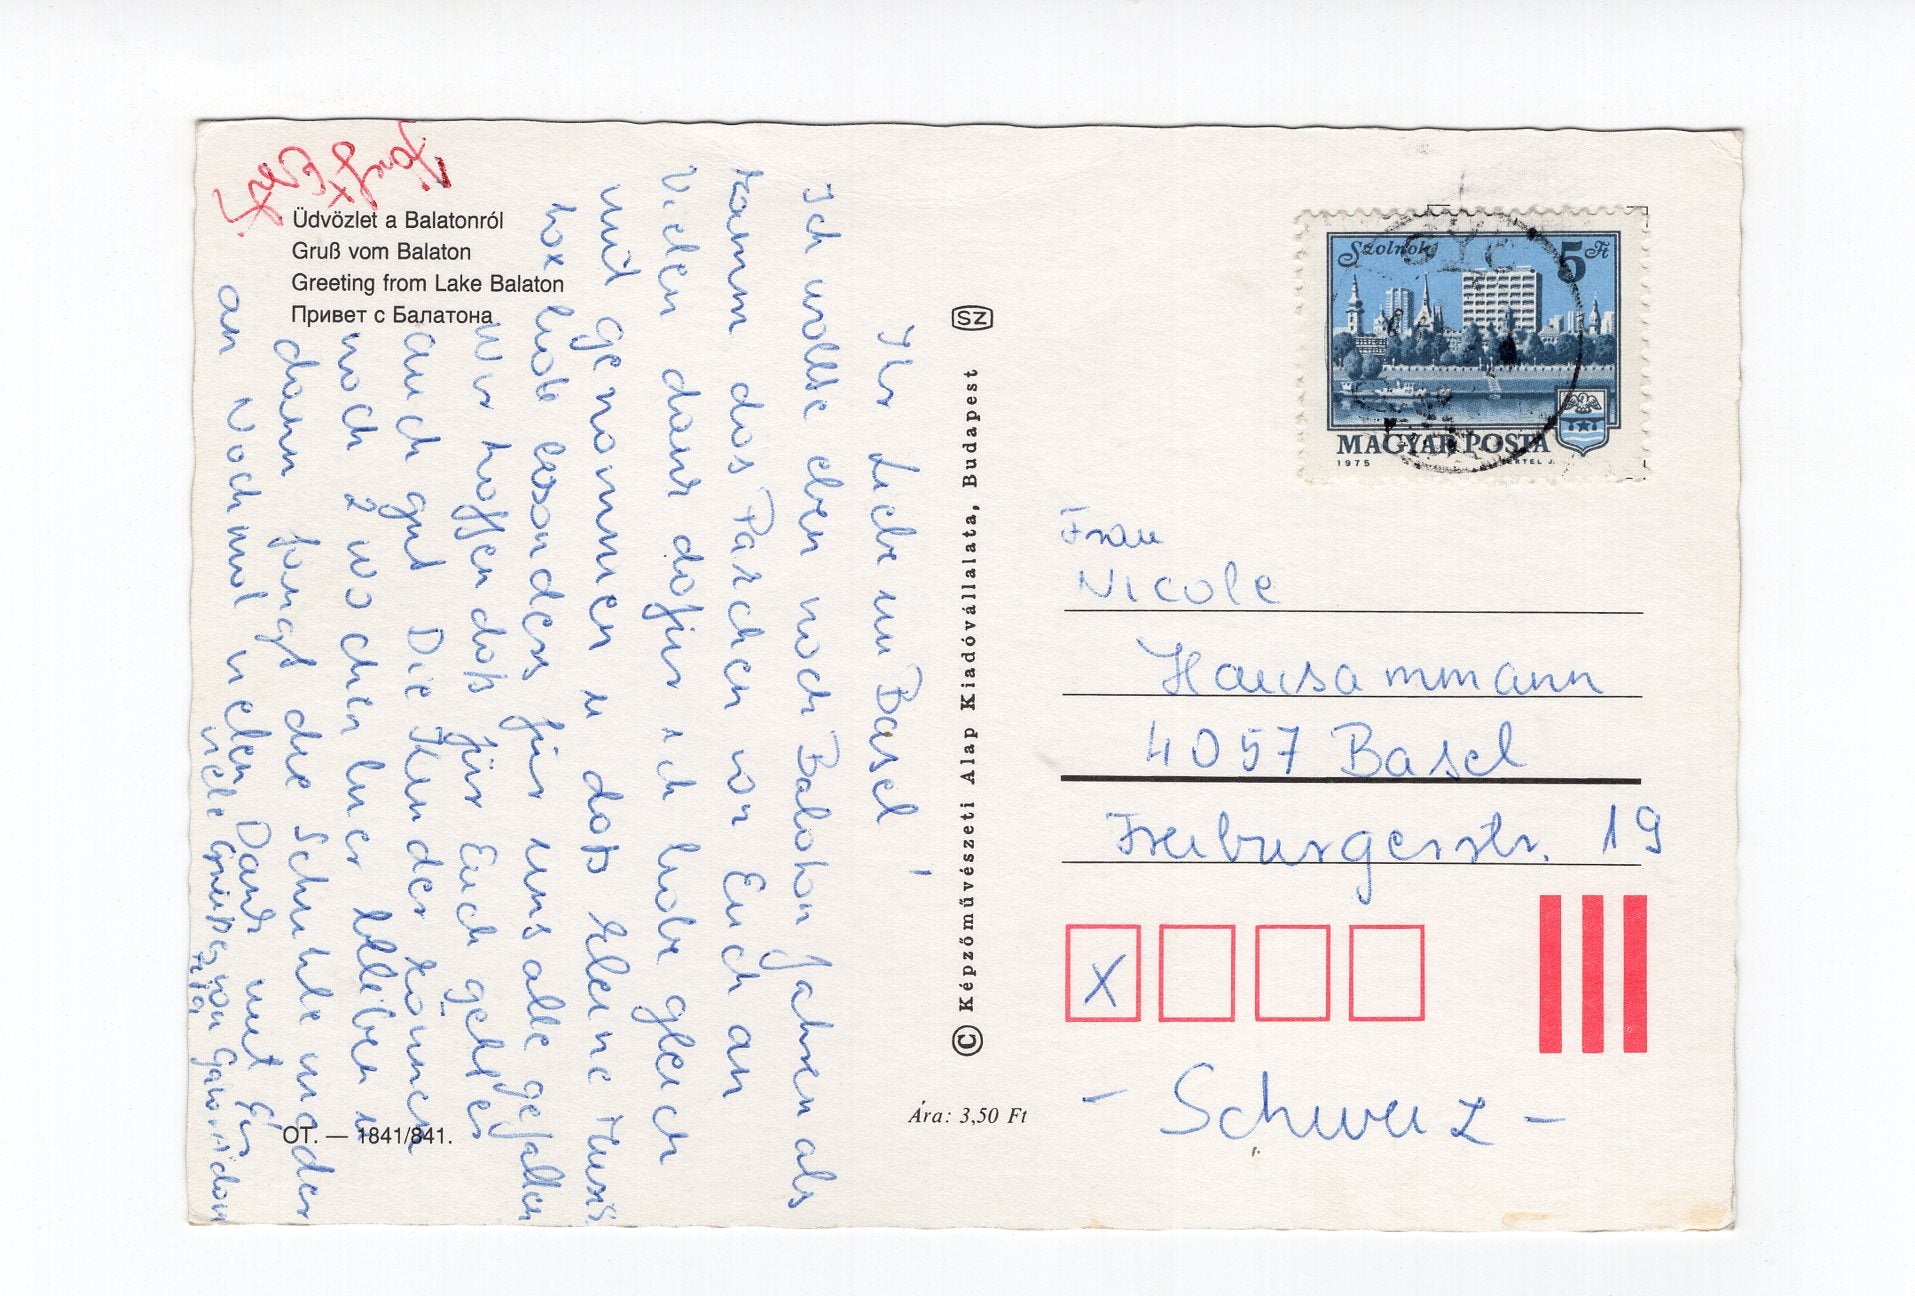 Üdvözlet a Balatonról
Gruß vom Balaton
Greeting from Lake Balaton
Привет с Балатона
Ihr Liebe in Basel!
Ich wollte eben noch Balaton fahren als
kamm das Pärchen von Euch an
Vielen dank dafür ich habe gleich
mit genommen u daß kleine Musik
box habe besonders für uns alle gefallen
Wir hoffen daß für Euch geht es
auch gut Die Kinder können
noch 2 wochen hier bleiben u
dann fangt die Schuhle wieder
an Nochmal vielen Dank und
viele Grüße von
OT. — 1841/841.
SZ
© Képzőművészeti Alap Kiadóvállalata, Budapest
Ára: 3,50 Ft
Szolnok 5 Ft
MAGYAR POSTA
1975
Frau
Nicole
Hausammmann
4057 Basel
Freiburgerstr. 19
X
- Schweiz -